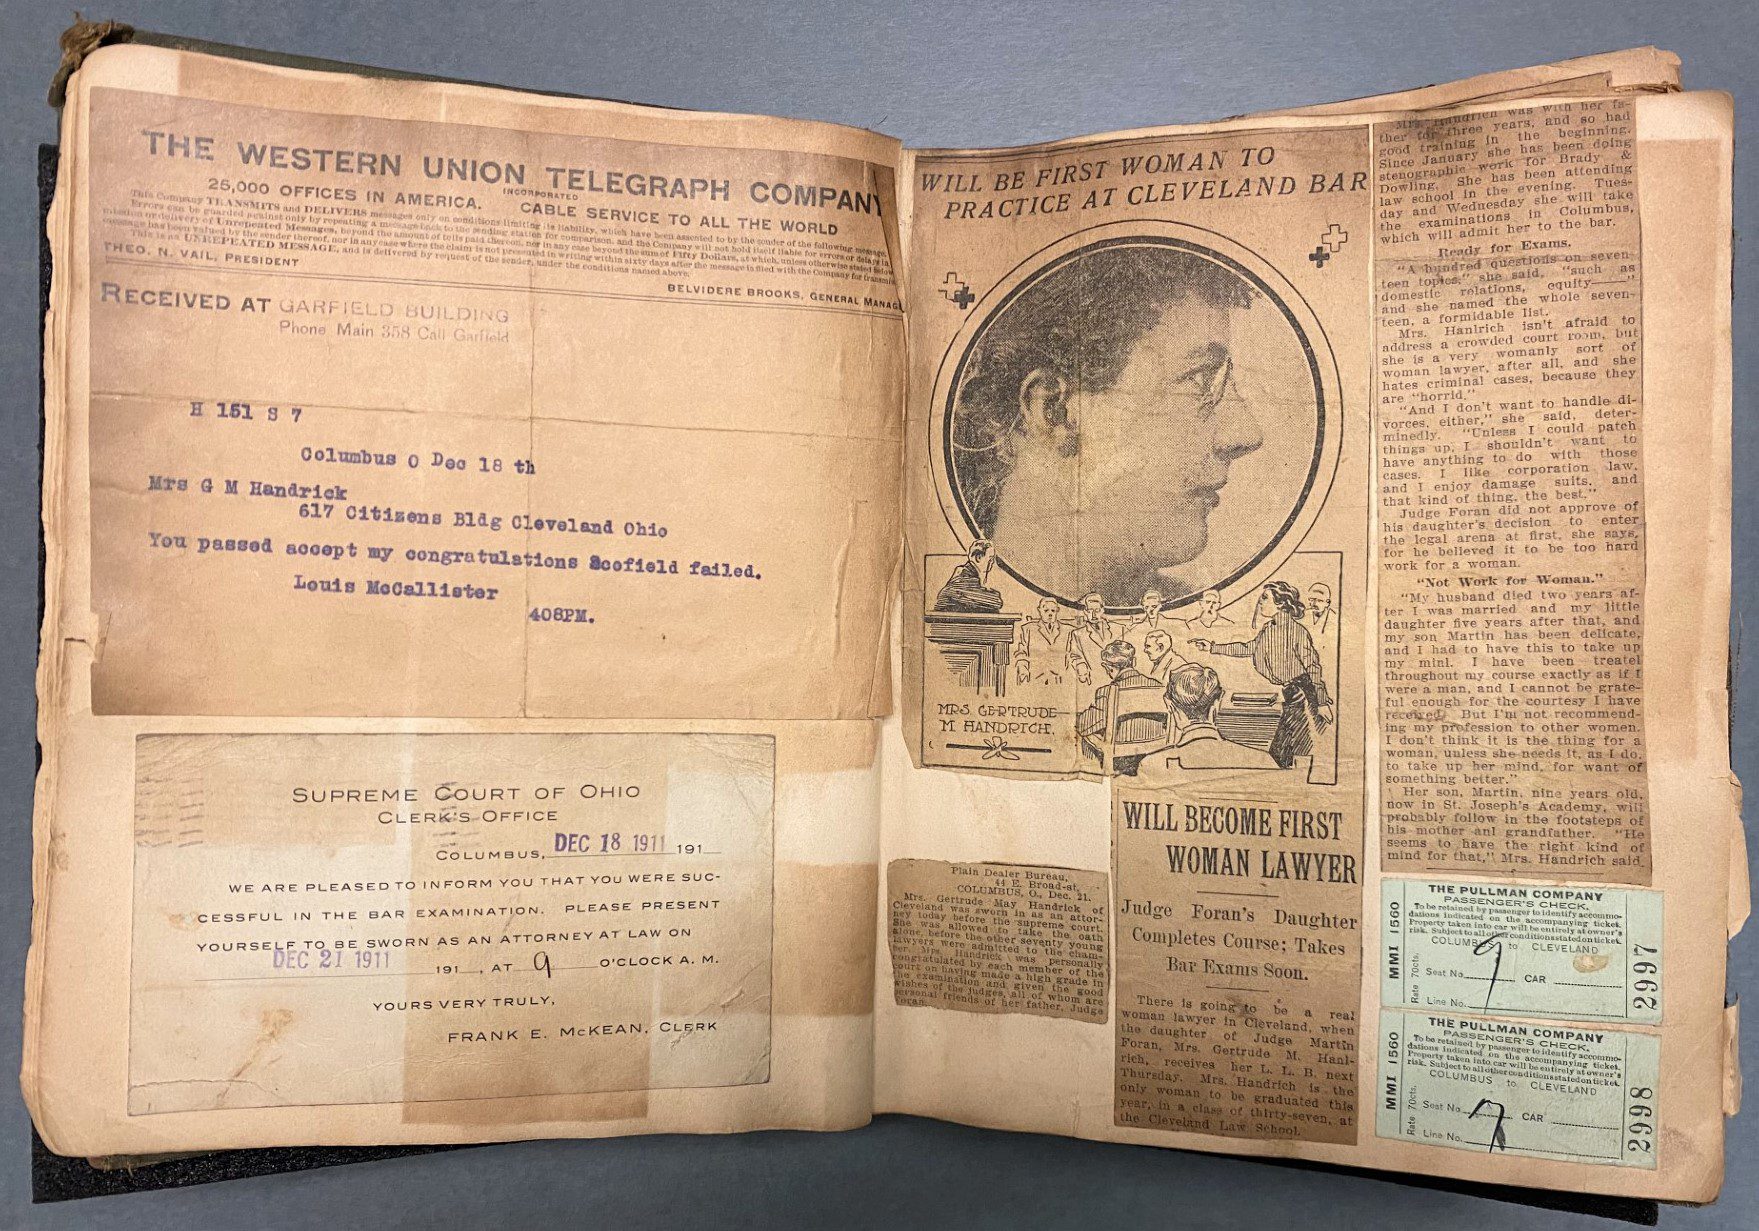 THE WESTERN UNION TELEGRAPH COMPANY
INCORPORATED
25,000 OFFICES IN AMERICA. CABLE SERVICE TO ALL THE WORLD
This Company TRANSMITS and DELIVERS messages only on conditions limiting its liability, which have been assented to by the sender of the following message.
Errors can be guarded against only by repeating a message back to the sending station for comparison, and the Company will not hold itself liable for errors or delays in
transmission or delivery of Unrepeated Messages, beyond the amount of tolls paid thereon, nor in any case beyond the sum of Fifty Dollars, at which, unless otherwise stated below
message has been valued by the sender thereof, nor in any case where the claim is not presented in writing within sixty days after the message is filed with the Company for transmis
This is an UNREPEATED MESSAGE, and is delivered by request of the sender, under the conditions named above.
THEO. N. VAIL, PRESIDENT
BELVIDERE BROOKS, GENERAL MANAG
RECEIVED AT GARFIELD BUILDING
Phone Main 358 Call Garfield
H 151 S 7
Columbus O Dec 18 th
Mrs G M Handrick
617 Citizens Bldg Cleveland Ohio
You passed accept my congratulations Scofield failed.
Louis McCallister
408PM.
SUPREME COURT OF OHIO
CLERK'S OFFICE
COLUMBUS, DEC 18 1911 191
WE ARE PLEASED TO INFORM YOU THAT YOU WERE SUC-
CESSFUL IN THE BAR EXAMINATION. PLEASE PRESENT
YOURSELF TO BE SWORN AS AN ATTORNEY AT LAW ON
DEC 21 1911 191 , AT 9 O'CLOCK A. M.
YOURS VERY TRULY,
FRANK E. McKEAN, CLERK
WILL BE FIRST WOMAN TO
PRACTICE AT CLEVELAND BAR
MRS. GERTRUDE
M HANDRICH.
Plain Dealer Bureau,
44 E. Broad-st,
COLUMBUS, O., Dec. 21.
Mrs. Gertrude May Handrick of
Cleveland was sworn in as an attor-
ney today before the supreme court.
She was allowed to take the oath
alone, before the other seventy young
lawyers were admitted to the cham-
ber. Mrs. Handrick was personally
congratulated by each member of the
court on having made a high grade in
the examination and given the good
wishes of the judges, all of whom are
personal friends of her father, Judge
Foran.
WILL BECOME FIRST
WOMAN LAWYER
Judge Foran's Daughter
Completes Course; Takes
Bar Exams Soon.
There is going to be a real
woman lawyer in Cleveland, when
the daughter of Judge Martin
Foran, Mrs. Gertrude M. Hanl-
rich, receives her L. L. B. next
Thursday. Mrs. Handrich is the
only woman to be graduated this
year, in a class of thirty-seven, at
the Cleveland Law School.
Mrs. Handrich was with her fa-
ther for three years, and so had
good training in the beginning.
Since January she has been doing
stenographic work for Brady &
Dowling. She has been attending
law school in the evening. Tues-
day and Wednesday she will take
the examinations in Columbus,
which will admit her to the bar.
Ready for Exams.
"A hundred questions on seven-
teen topics," she said, "such as
domestic relations, equity——"
and she named the whole seven-
teen, a formidable list.
Mrs. Hanlrich isn't afraid to
address a crowded court room, but
she is a very womanly sort of
woman lawyer, after all, and she
hates criminal cases, because they
are "horrid."
"And I don't want to handle di-
vorces, either," she said, deter-
minedly. "Unless I could patch
things up, I shouldn't want to
have anything to do with those
cases. I like corporation law,
and I enjoy damage suits, and
that kind of thing, the best."
Judge Foran did not approve of
his daughter's decision to enter
the legal arena at first, she says,
for he believed it to be too hard
work for a woman.
"Not Work for Woman."
"My husband died two years af-
ter I was married and my little
daughter five years after that, and
my son Martin has been delicate,
and I had to have this to take up
my minl. I have been treatel
throughout my course exactly as if I
were a man, and I cannot be grate-
ful enough for the courtesy I have
received. But I'm not recommend-
ing my profession to other women.
I don't think it is the thing for a
woman, unless she needs it, as I do,
to take up her mind, for want of
something better."
Her son, Martin, nine years old,
now in St. Joseph's Academy, will
probably follow in the footsteps of
his mother anl grandfather. "He
seems to have the right kind of
mind for that," Mrs. Handrich said.
THE PULLMAN COMPANY
PASSENGER'S CHECK.
To be retained by passenger to identify accommo-
dations indicated on the accompanying ticket.
Property taken into car will be entirely at owner's
risk. Subject to all other conditions stated on ticket.
COLUMBUS to CLEVELAND
Seat No. 9 CAR
Line No.
MMI 1560
Rate 70cts.
2997
THE PULLMAN COMPANY
PASSENGER'S CHECK.
To be retained by passenger to identify accommo-
dations indicated on the accompanying ticket.
Property taken into car will be entirely at owner's
risk. Subject to all other conditions stated on ticket.
COLUMBUS to CLEVELAND
Seat No. 7 CAR
Line No.
MMI 1560
Rate 70cts.
2998